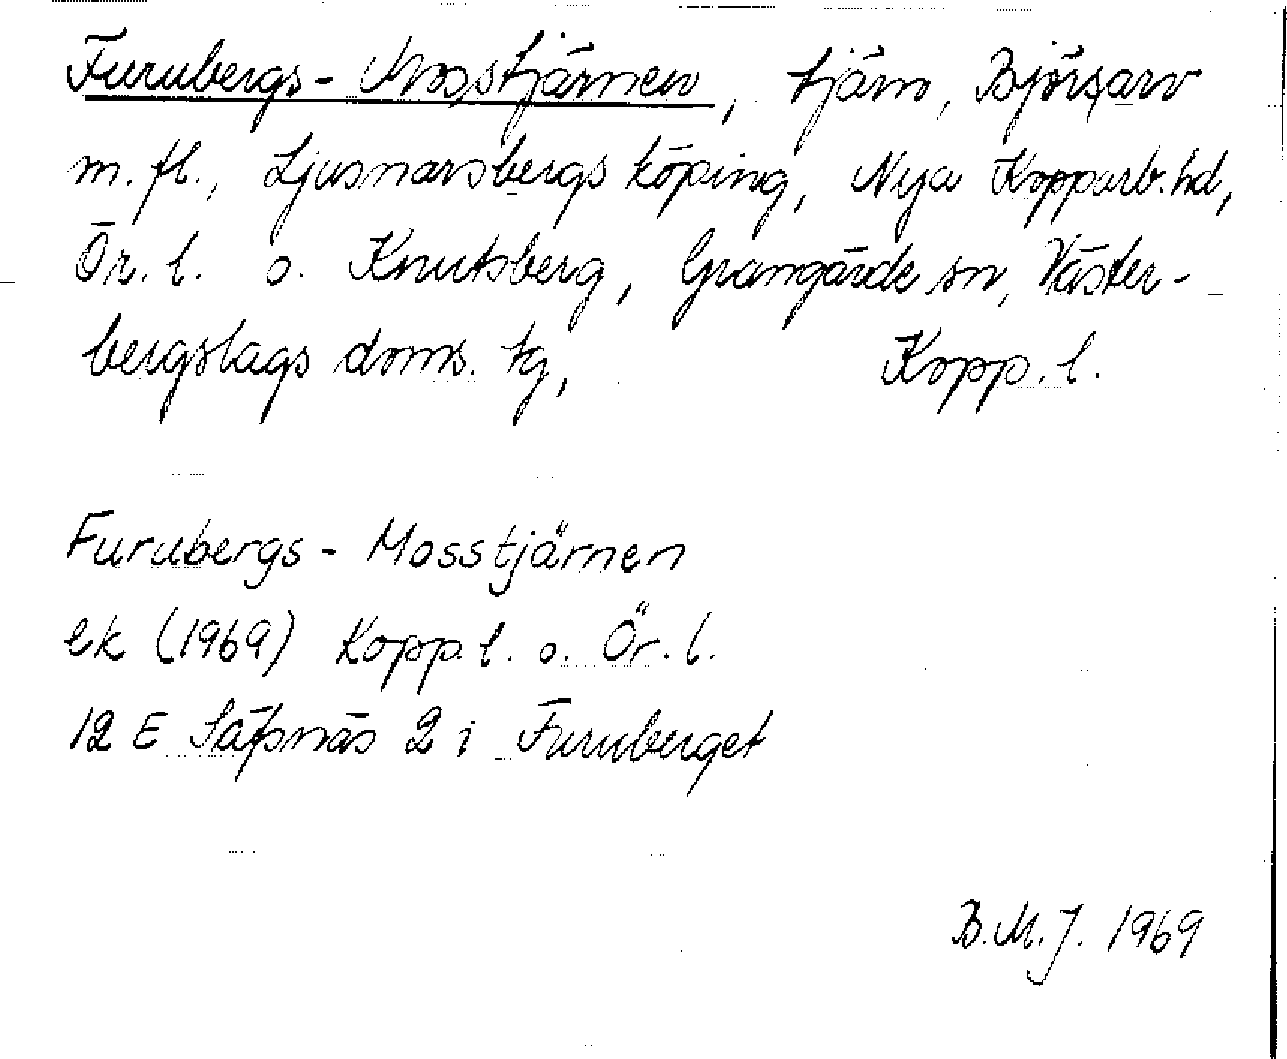 Furubergs-Mosstjärnen, tjärn, Björsarv
m. fl., Ljusnarsbergs köping, Nya Kopparb. hd,
Ör. l. o. Knutsberg, Grangärde sn, Väster-
bergslags doms. tg, Kopp. l.
Furubergs-Mosstjärnen
ek (1969) Kopp. l. o. Ör. l.
12 E Säfsnäs 2 i Furuberget
B.M.J. 1969